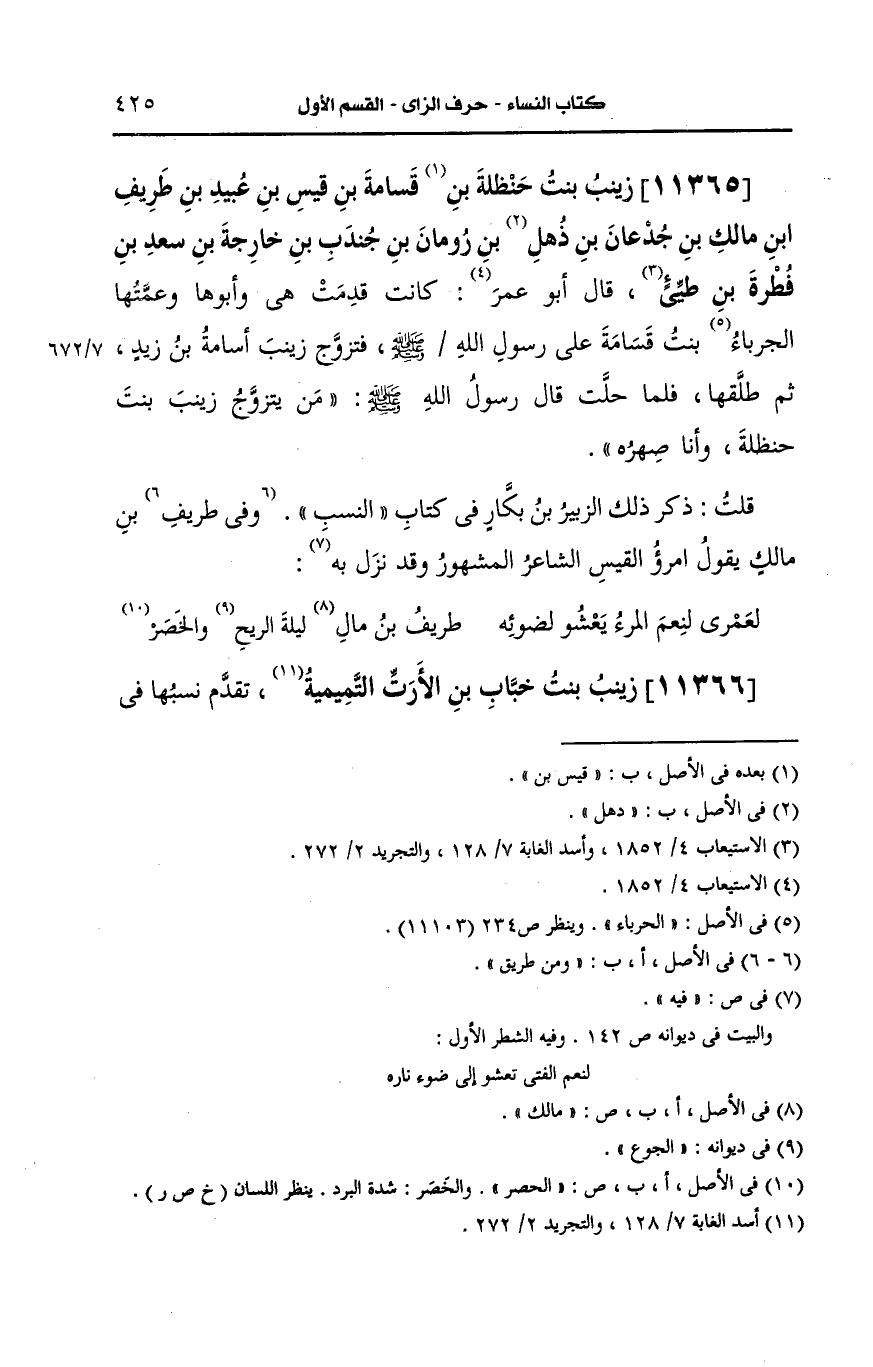 كتاب النساء - حرف الزاى - القسم الأول ٤٢٥
[١١٣٦٥] زينبُ بنتُ حَنْظلةَ بنِ(١) قَسامةَ بنِ قيسِ بنِ عُبيدِ بنِ طَرِيفِ
ابنِ مالكِ بنِ جُدْعانَ بنِ ذُهلِ(٢) بنِ رُومانَ بنِ جُندَبِ بنِ خارجةَ بنِ سعدِ بنِ
فُطْرةَ بنِ طيِّئٍ(٣)، قال أبو عمرَ(٤): كانت قدِمَتْ هى وأبوها وعمَّتُها
الجرباءُ(٥) بنتُ قَسَامَةَ على رسولِ اللهِ / ﷺ، فتزوَّج زينبَ أسامةُ بنُ زيدٍ، ٦٧٢/٧
ثم طلَّقها، فلما حلَّت قال رسولُ اللهِ ﷺ: «مَن يتزوَّجُ زينبَ بنتَ
حنظلةَ، وأنا صِهرُه».
قلتُ: ذكر ذلك الزبيرُ بنُ بكَّارٍ فى كتابِ «النسبِ». (٦وفى طريفِ٦) بنِ
مالكٍ يقولُ امرؤُ القيسِ الشاعرُ المشهورُ وقد نزَل به(٧):
لعَمْرى لنِعمَ المرءُ يَعْشُو لضوئِه طريفُ بنُ مالِ(٨) ليلةَ الريحِ(٩) والخَصَرْ(١٠)
[١١٣٦٦] زينبُ بنتُ خبَّابِ بنِ الأَرَتِّ التَّمِيميةُ(١١)، تقدَّم نسبُها فى
(١) بعده فى الأصل، ب: «قيس بن».
(٢) فى الأصل، ب: «دهل».
(٣) الاستيعاب ٤/ ١٨٥٢، وأسد الغابة ٧/ ١٢٨، والتجريد ٢/ ٢٧٢.
(٤) الاستيعاب ٤/ ١٨٥٢.
(٥) فى الأصل: «الحرباء». وينظر ص٢٣٤ (١١١٠٣).
(٦ - ٦) فى الأصل، أ، ب: «ومن طريق».
(٧) فى ص: «فيه».
والبيت فى ديوانه ص ١٤٢. وفيه الشطر الأول:
لنعم الفتى تعشو إلى ضوء ناره
(٨) فى الأصل، أ، ب، ص: «مالك».
(٩) فى ديوانه: «الجوع».
(١٠) فى الأصل، أ، ب، ص: «الحصر». والخَصَر: شدة البرد. ينظر اللسان (خ ص ر).
(١١) أسد الغابة ٧/ ١٢٨، والتجريد ٢/ ٢٧٢.